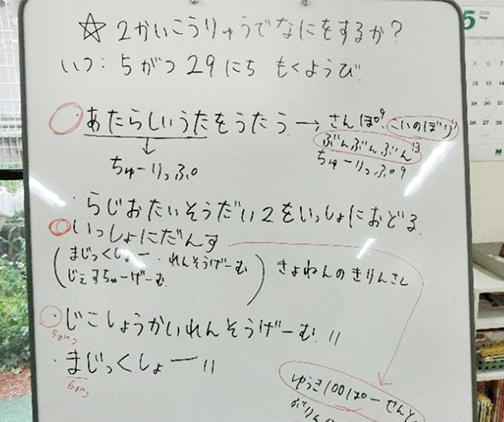 ☆2かいこうりゅうでなにをするか?
いつ:5がつ29にち もくようび
あたらしいうたをうたう→さんぽ9 こいのぼり7
ぶんぶんぶん13
ちゅーりっぷ ちゅーりっぷ9
・らじおたいそうだい2をいっしょにおどる
いっしょにだんす
(まじっくしょー・れんそうげーむ
じぇすちゃーげーむ) きょねんのきりんさん
・じこしょうかいれんそうげーむ 11
5
・まじっくしょー 11
6
ゆうき100ぱーせんと
5
May